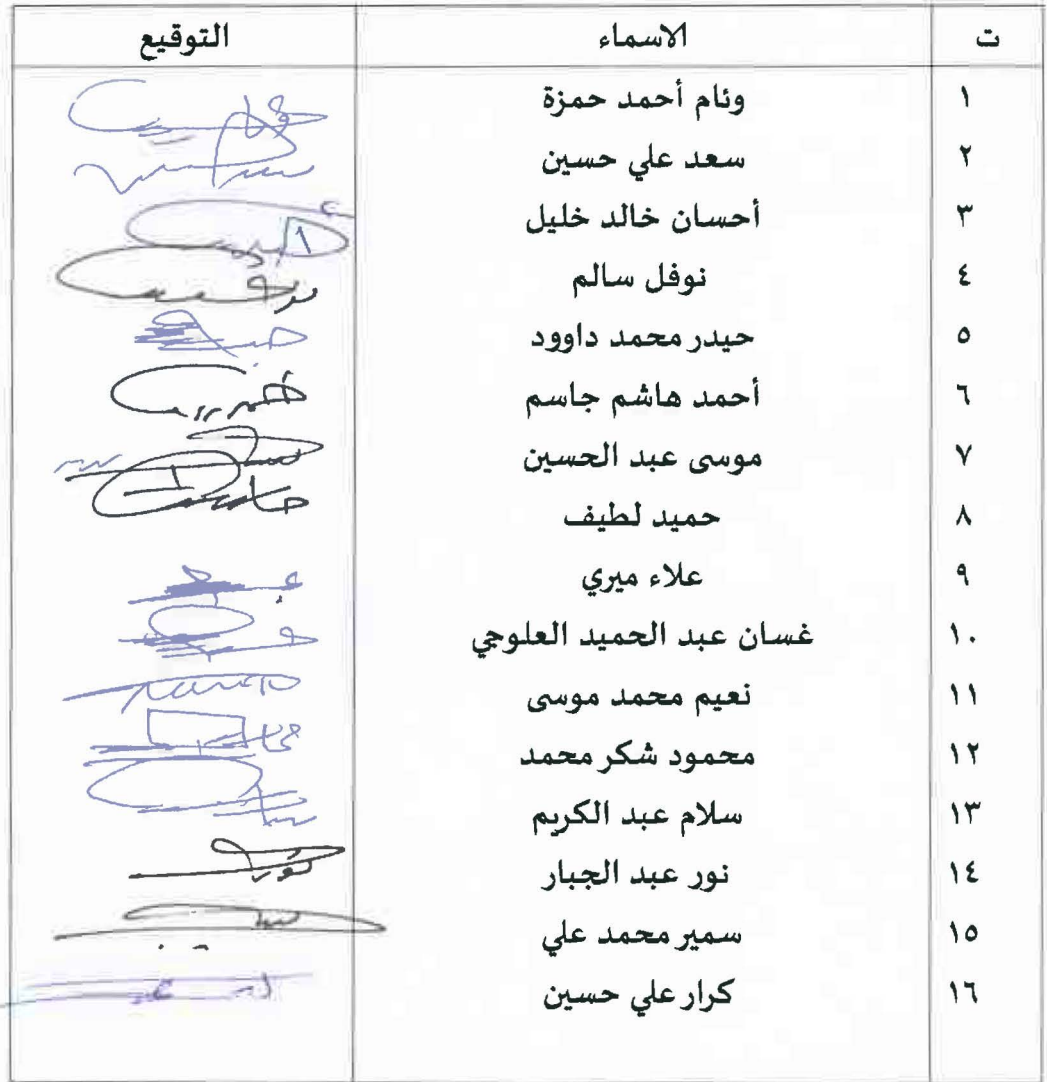 ت الاسماء التوقيع
١ وئام أحمد حمزة
٢ سعد علي حسين
٣ أحسان خالد خليل
٤ نوفل سالم
٥ حيدر محمد داوود
٦ أحمد هاشم جاسم
٧ موسى عبد الحسين
٨ حميد لطيف
٩ علاء ميري
١٠ غسان عبد الحميد العلوجي
١١ نعيم محمد موسى
١٢ محمود شكر محمد
١٣ سلام عبد الكريم
١٤ نور عبد الجبار
١٥ سمير محمد علي
١٦ كرار علي حسين